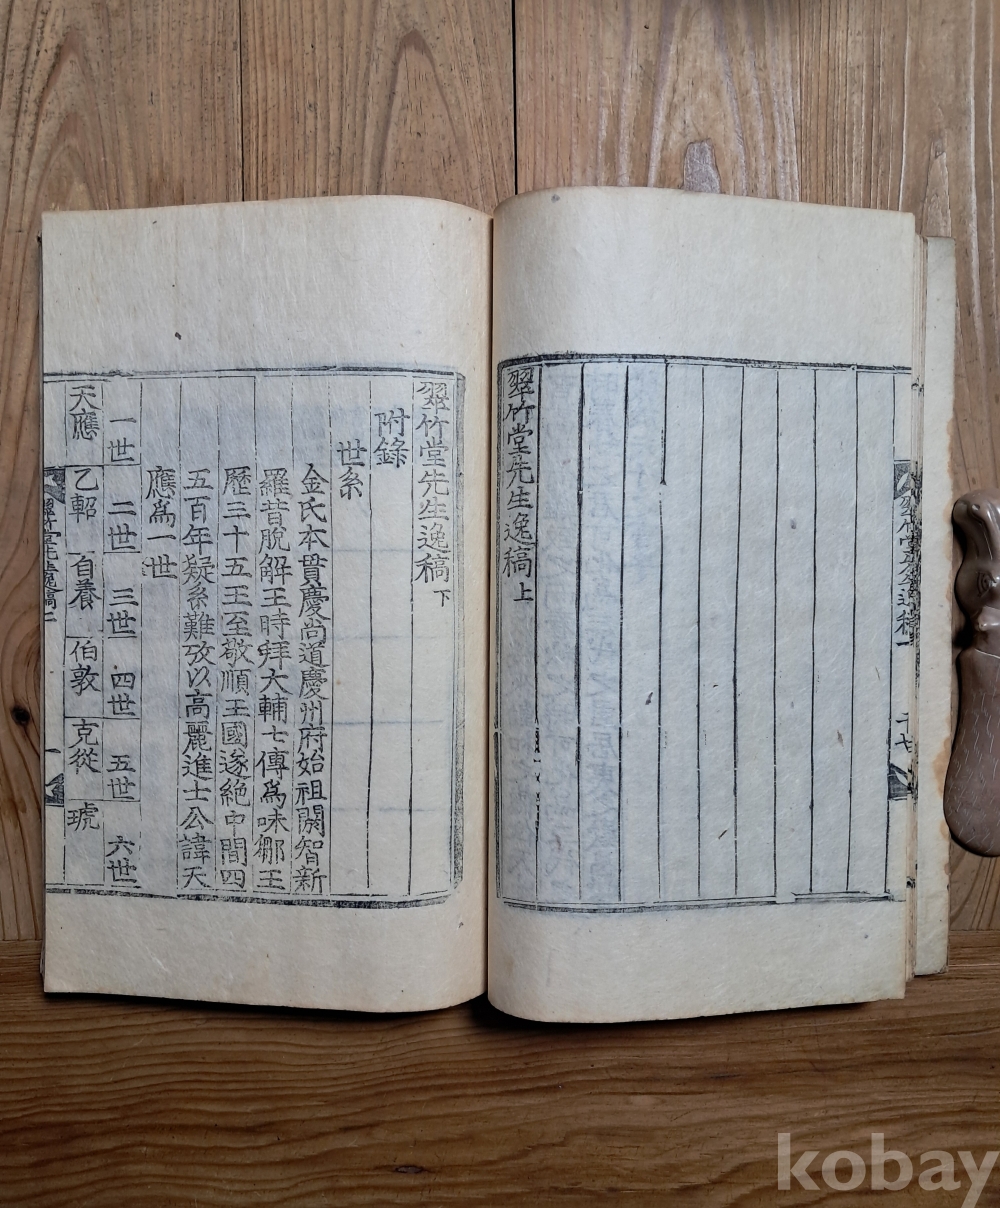 翠竹堂先生逸稿一
十七
翠竹堂先生逸稿上
翠竹堂先生逸稿下
附錄
世系
金氏本貫慶尚道慶州府始祖閼智新
羅昔脫解王時拜大輔七傳爲味鄒王
歷三十五王至敬順王國遂絶中間四
五百年疑系難攷以高麗進士公諱天
應爲一世
一世 二世 三世 四世 五世 六世
天應 乙軺 自養 伯敦 克從 琥
翠竹堂先生逸稿二
一
kobay